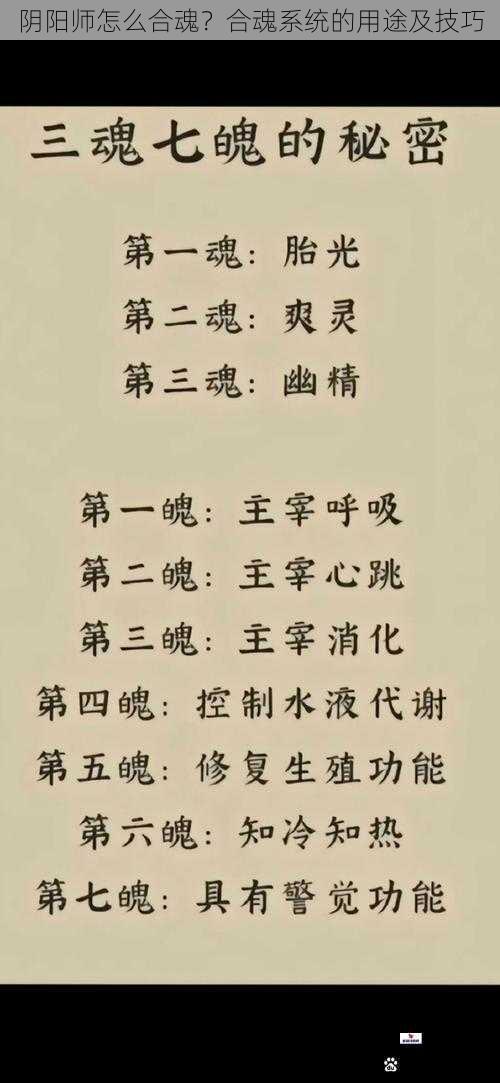 阴阳师怎么合魂？合魂系统的用途及技巧
三魂七魄的秘密
第一魂：胎光
第二魂：爽灵
第三魂：幽精
第一魄：主宰呼吸
第二魄：主宰心跳
第三魄：主宰消化
第四魄：控制水液代谢
第五魄：修复生殖功能
第六魄：知冷知热
第七魄：具有警觉功能